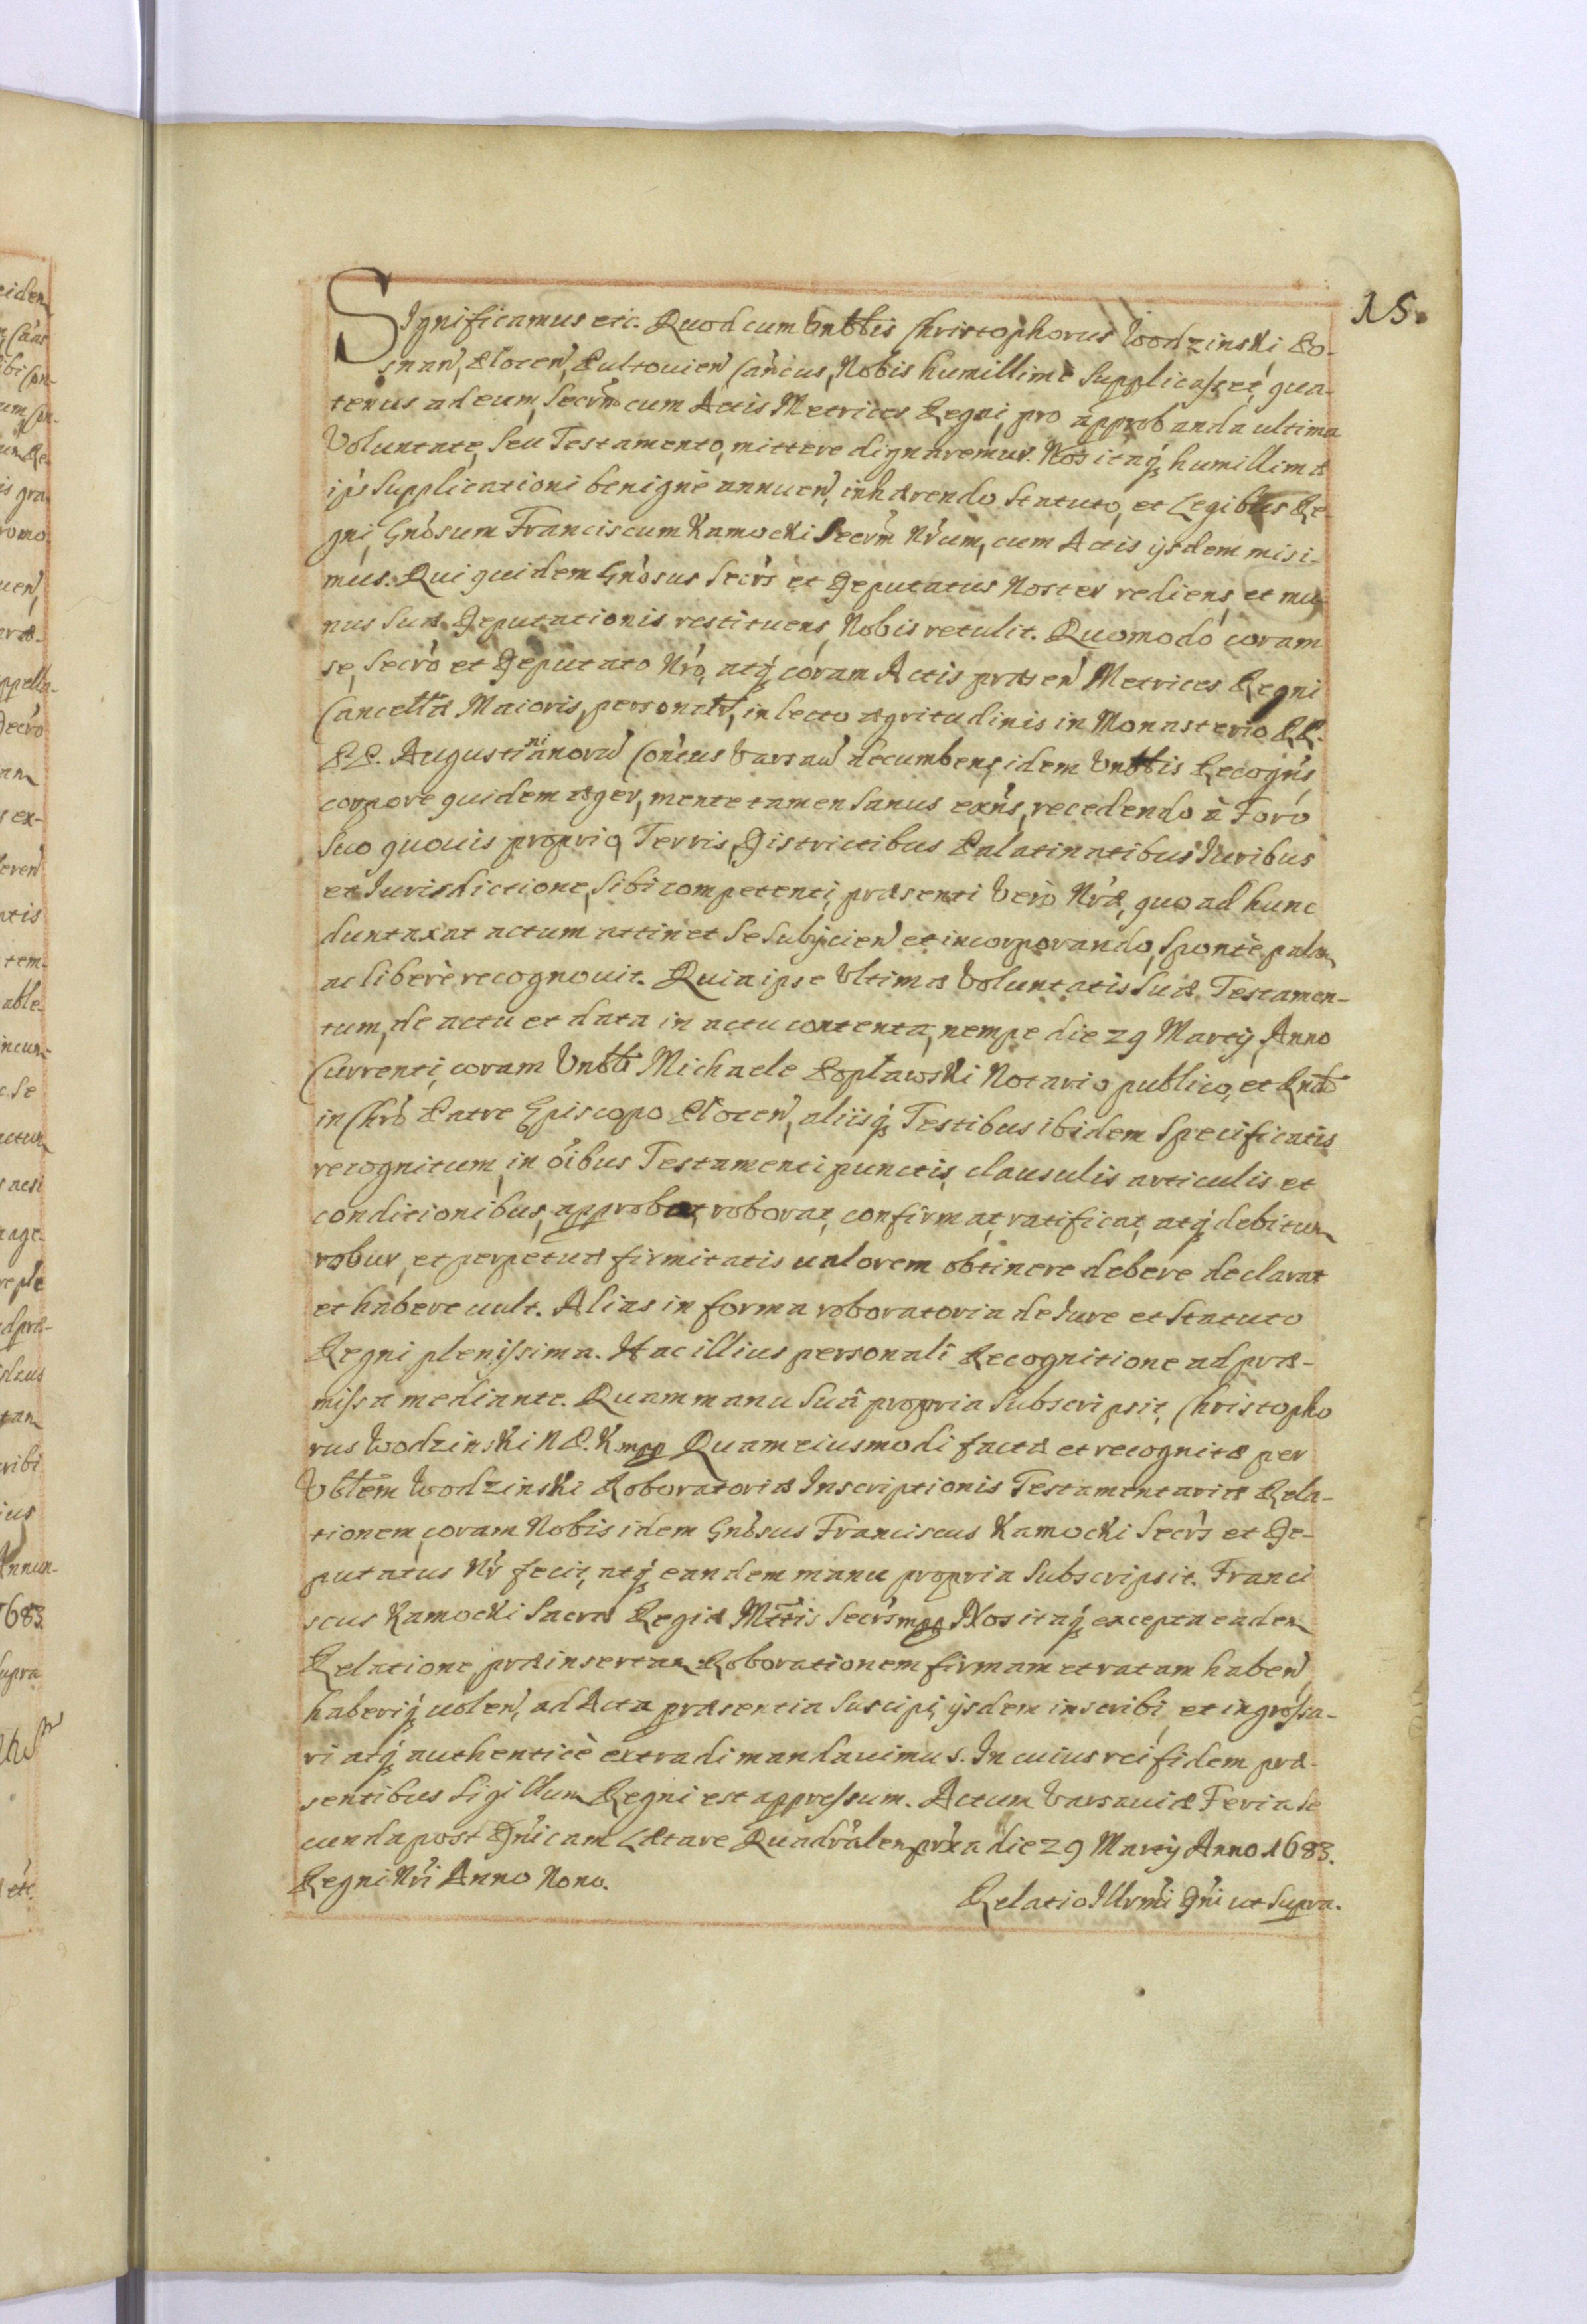 15.
Significamus etc. Quod cum Vnbblis Christophorus Wodzinski Po-
snan, Plocen, Pultovien Cańcus, Nobis humillimè Supplicasset, qua-
tenus ad eum, Secrm cum Actis Metrices Regni, pro approbanda ultima
Voluntate, Seu Testamento, mittere dignaremur. Nos itaq humillimæ
ips Supplicationi benignè annuen, inhærendo Statuto, et Legibus Re-
gni, Gnosum Franciscum Kamocki Secrm Nrum, cum Actis ijsdem misi-
mus. Qui quidem Gnosus Secrs et Deputatus Noster rediens, et mu-
nus Suæ Deputationis restituens, Nobis retulit. Quomodo coram
se, Secro et Deputato Nro, atq coram Actis præsen Metrices Regni
Cancellæ Maioris, personalr, in lecto ægritudinis in Monasterio RR.
PP. Augustinianoru Contus Varsau decumbens, idem Vnbblis Recogns,
corpore quidem æger, mente tamen Sanus exns, recedendo à Foro
Suo quouis proprio, Terris, Districtibus Palatinatibus Iuribus
et Iurisdictione, Sibi competenti, præsenti Verò Nræ, quo ad hunc
duntaxat actum attinet Se Subijcien et incorporando, Sponte, palam
ac liberè recognouit. Quia ipse Vltimæ Voluntatis Suæ Testamen-
tum, de actu et data in actu contenta, nempe die 29 Martij Anno
Currenti, coram Vnbbli Michaele Popławski Notario publico, et Rndo
in Chro Patre Episcopo Plocen, aliisq Testibus ibidem Specificatis
recognitum, in oibus Testamenti punctis, clausulis articulis et
conditionibus, approbat, roborat, confirmat, ratificat, atq debitum
robur, et perpetuæ firmitatis ualorem obtinere debere declarat
et habere uult. Alias in forma roboratoria de Iure et Statuto
Regni plenissima. Hac illius personali Recognitione ad præ-
missa mediante. Quam manu Suâ propria Subscripsit, Christopho
rus Wodzinski N P. K mpp Quam eiusmodi factæ et recognitæ per
Vblem Wodzinski Roboratoriæ Inscriptionis Testamentariæ Rela-
tionem, coram Nobis idem Gnosus Franciscus Kamocki Secrs et De-
putatus Nr fecit, atq eandem manu propria Subscripsit. Franci
scus Kamocki Sacræ Regiæ Mttis Secrs mpp Nos itaq excepta eadem
Relatione, præinsertam Roborationem firmam et ratam haben,
haberiq uolen, ad Acta præsentia Suscipi, ijsdem inscribi, et ingrossa-
ri atq authenticè extradi mandauimus. In cuius rei fidem præ-
sentibus Sigillum Regni est appressum. Actum Varsauiæ Feria Se
cunda post Dnicam Lætare Quadralem prxa die 29 Martij Anno 1683.
Regni Nri Anno Nono.
Relatio Illrmi Dni ut Supra.